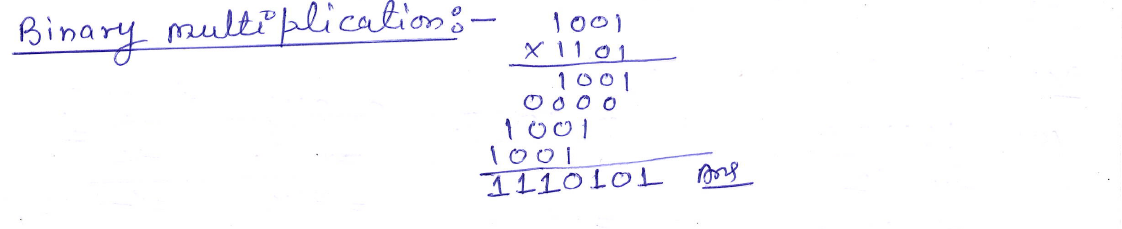 Binary multiplication:- 1001
× 1101
1001
0000
1001
1001
1110101 Ans